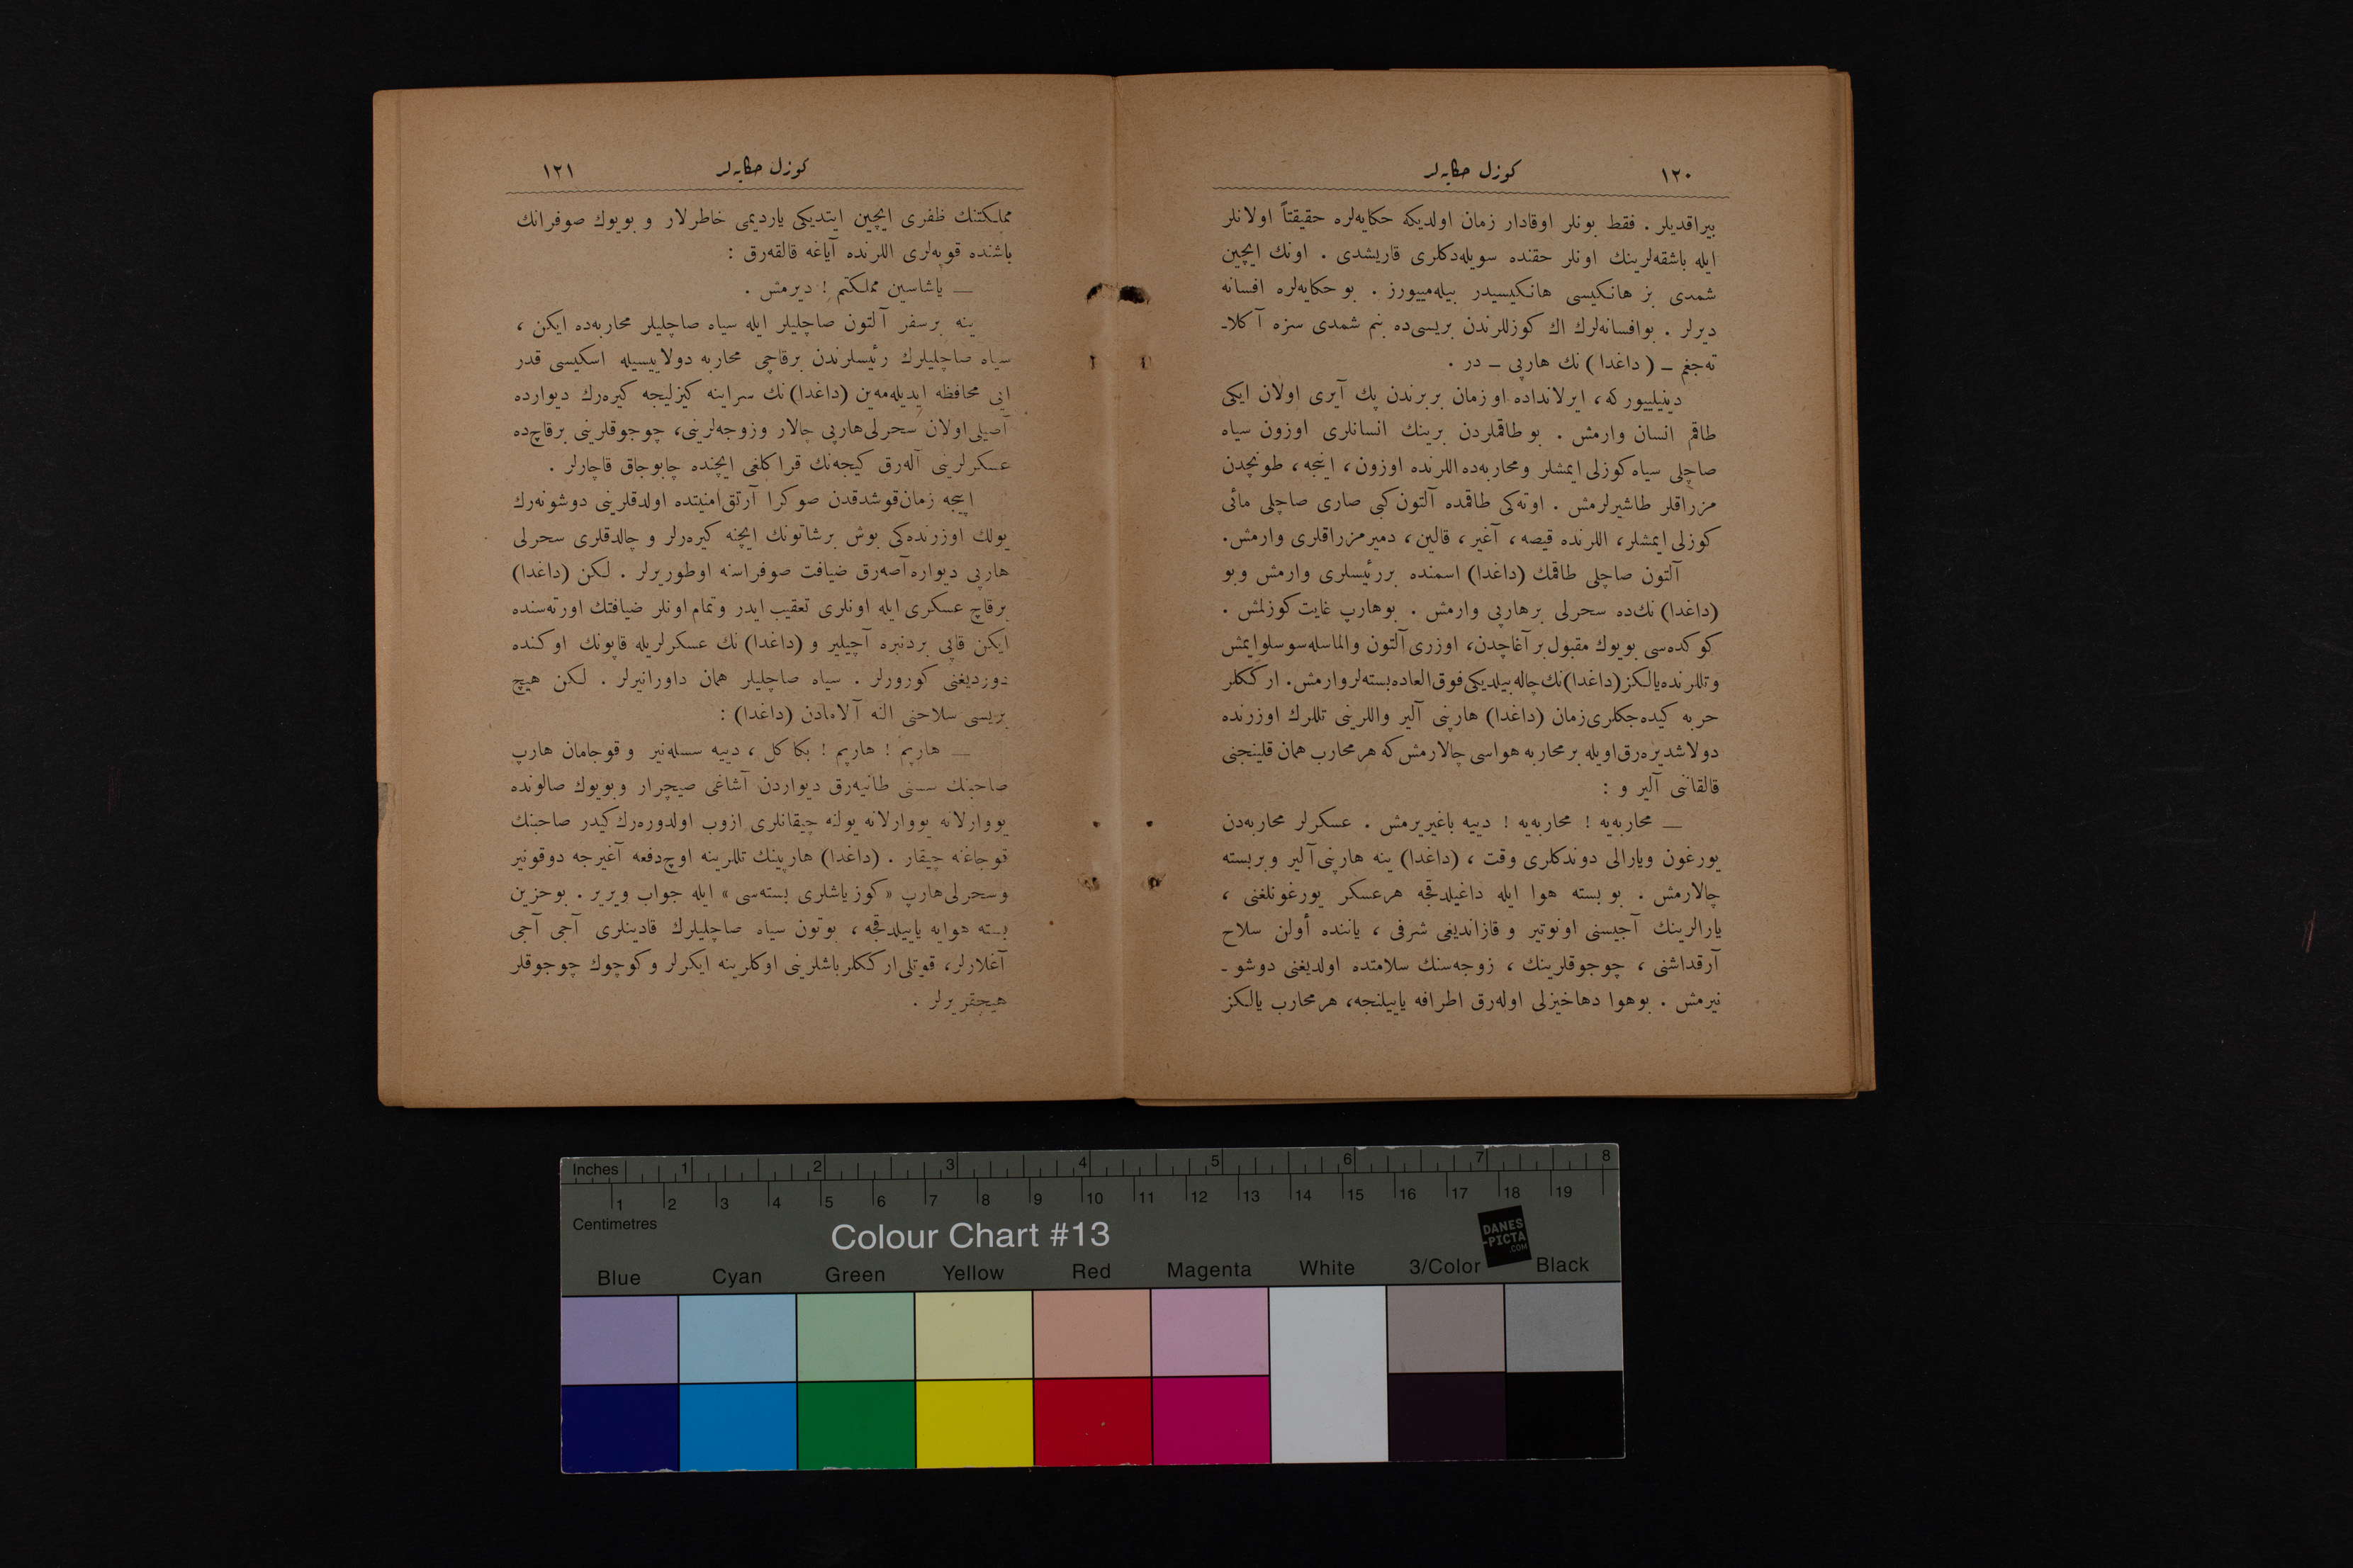 ١٢٠
كوزل حكايه‌لر
بيراقديلر . فقط بونلر اوقادار زمان اولديكه حكايه‌لره حقيقتاً اولانلر
ايله باشقه‌لرينك اونلر حقنده سويله‌دكلرى قاريشدى . اونك ايچين
شمدى بز هانكيسى هانكيسيدر بيله‌ميورز . بو حكايه‌لره افسانه
ديرلر . بوافسانه‌لرك اك كوزللرندن بريسى‌ده بنم شمدى سزه آكلا-
ته‌جغم – ( داغدا ) نك هارپى – در .
دينيلييور كه ، ايرلانداده اوزمان بربرندن پك آيرى اولان ايكى
طاقم انسان وارمش . بو طاقملردن برينك انسانلرى اوزون سياه
صاچلى سياه كوزلى ايمشلر ومحاربه‌ده اللرنده اوزون ، اينجه ، طونجدن
مزراقلر طاشيرلرمش . اوته‌كى طاقمده آلتون كبى صارى صاچلى مائى
كوزلى ايمشلر ، اللرنده قيصه ، آغير ، قالين ، دمير مزراقلرى وارمش .
آلتون صاچلى طاقمك (داغدا) اسمنده بررئيسلرى وارمش وبو
(داغدا) نك‌ده سحرلى برهارپى وارمش . بوهارپ غايت كوزلمش .
كوكده‌سى بويوك مقبول بر آغاچدن ، اوزرى آلتون والماسله سوسلو ايمش
وتللرنده يالكز (داغدا) نك چاله بيلديكى فوق‌العاده بسته‌لر وارمش . ارككلر
حربه كيده‌جكلرى زمان (داغدا) هارپنى آلير واللرينى تللرك اوزرنده
دولاشديره‌رق اويله بر محاربه هواسى چالارمش كه هر محارب همان قلينجنى
قالقاننى آلير و :
— محاربه‌يه ! محاربه‌يه ! دييه باغيريرمش . عسكرلر محاربه‌دن
يورغون ويارالى دوندكلرى وقت ، (داغدا) ينه هارپنى آلير وبر بسته
چالارمش . بو بسته هوا ايله داغيلدقجه هرعسكر يورغونلغنى ،
يارالرينك آجيسنى اونوتير و قازانديغى شرفى ، ياننده أولن سلاح
آرقداشنى ، چوجوقلرينك ، زوجه‌سنك سلامتده اولديغنى دوشو -
نيرمش . بوهوا دها خيزلى اوله‌رق اطرافه ياييلنجه ، هر محارب يالكز
كوزل حكايه‌لر
١٢١
مملكتنك ظفرى ايچين ايتديكى يارديمى خاطرلار و بويوك صوفرانك
باشنده قوپه‌لرى اللرنده آياغه قالقه‌رق :
— ياشاسين مملكتم ! ديرمش .
ينه برسفر آلتون صاچليلر ايله سياه صاچليلر محاربه‌ده ايكن ،
سياه صاچليلرك رئيسلرندن برقاچى محاربه دولاييسيله اسكيسى قدر
ايى محافظه ايديله‌مه‌ين (داغدا) نك سراينه كيزليجه كيره‌رك ديوارده
آصيلى اولان سحرلى هارپى چالار وزوجه‌لرينى ، چوجوقلرينى برقاچ‌ده
عسكرلرينى آله‌رق كيجه‌نك قراكلغى ايچنده چابوجاق قاچارلر .
ايجه زمان قوشدقدن صوكرا آرتق امنيتده اولدقلرينى دوشونه‌رك
يولك اوزرنده‌كى بوش برشاتونك ايچنه كيره‌رلر و چالدقلرى سحرلى
هارپى ديواره آصه‌رق ضيافت صوفراسنه اوطوريرلر . لكن (داغدا)
برقاچ عسكرى ايله اونلرى تعقيب ايدر وتمام اونلر ضيافتك اورته‌سنده
ايكن قاپى بردنبره آچيلير و (داغدا) نك عسكرلريله قاپونك اوكنده
دورديغنى كورورلر . سياه صاچليلر همان داورانيرلر . لكن هيچ
بريسى سلاحنى النه آلامادن (داغدا) :
— هارپم ! هارپم ! بكا كل ، دييه سسله‌نير و قوجامان هارپ
صاحبنك سسنى طانيه‌رق ديواردن آشاغى صيچرار وبويوك صالونده
يووارلانه يووارلانه يولنه چيقانلرى ازوب اولدوره‌رك كيدر صاحبنك
قوجاغنه چيقار . (داغدا) هارپينك تللرينه اوچ دفعه آغيرجه دوقونير
وسحرلى هارپ « كوز ياشلرى بسته‌سى » ايله جواب ويرير . بوحزين
بسته هوايه ياييلدقجه ، بوتون سياه صاچليلرك قادينلرى آجى آجى
آغلارلر ، قوتلى اركلكر باشلرينى اوكلرينه ايكرلر وكوچوك چوجوقلر
هيچقريرلر .
Inches 1 2 3 4 5 6 7 8
1 2 3 4 5 6 7 8 9 10 11 12 13 14 15 16 17 18 19
Centimetres
Colour Chart #13
DANES
-PICTA
.COM
Blue Cyan Green Yellow Red Magenta White 3/Color Black